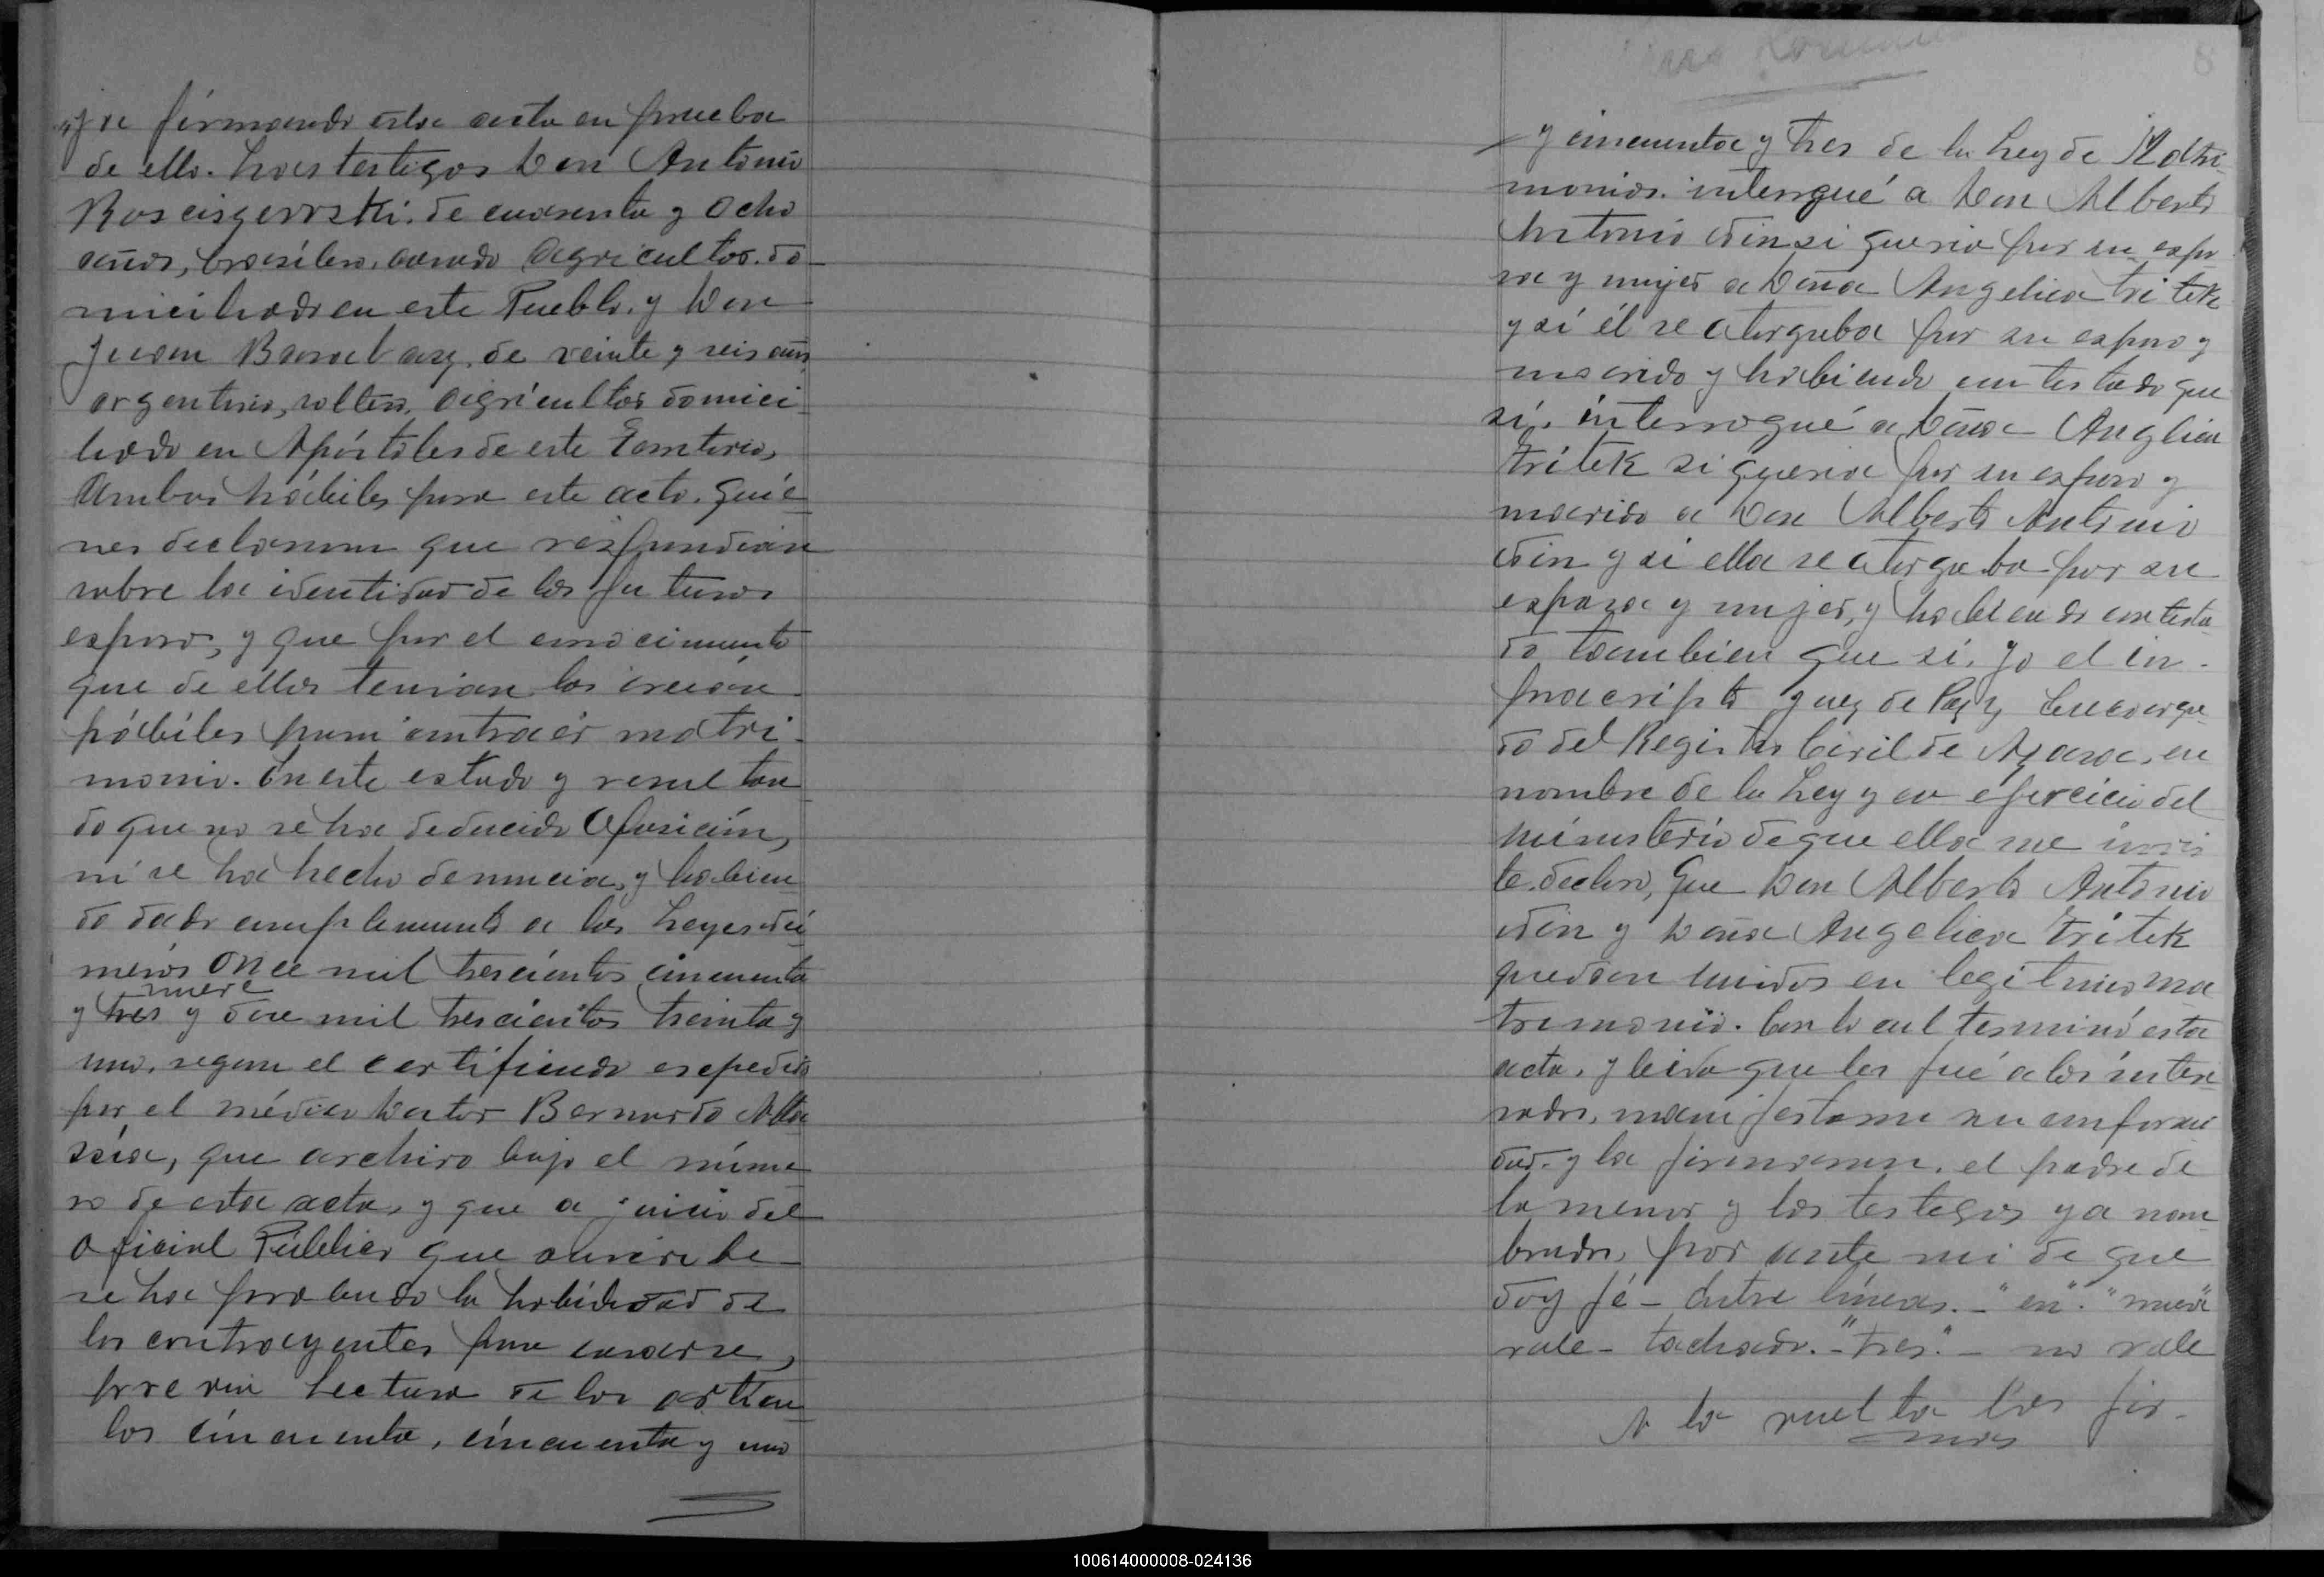 ja firmando esta acta en prueba
de ello. Los testigos Don Antonio
Rosciszewski. de cuarenta y ocho
años, brasilero, casado agricultor. do-
miciliado en este Pueblo. y Don
Juan Barabasz. de veinte y seis años
argentino, soltero, agricultor domici-
liado en Apóstoles de este Territorio,
Ambos hábiles para este acto. quié-
nes declararon que respondian
sobre la identidad de los futuros
esposos, y que por el conocimiento
que de ellos tenian los creian
hábiles para contraér matri-
monio. En este estado y resultan
do que no se ha deducido oposición,
ni se ha hecho denuncia, y habien
do dado cumplimiento a las Leyes nú-
meros once mil trescientos cincuenta
nueve
y tres y doce mil trescientos treinta y
uno. segun el certificado expedido
por el médico Doctor Bernardo
que archivo bajo el núme
ro de esta acta, y que a juicio del
oficial Público que suscribe
se ha probado la habilidad de
los contrayentes para casarse,
previa Lectura de los artícu
los cincuenta, cincuenta y uno
y cincuenta y tres de la Ley de Matri-
monios. interrgué a Don Alberto
Antonio Din si queria por su espo
sa y mujer a Doña Angelica Tritek
y sí él se otorgaba por su esposo y
marido y habiendo contestado que
sí. interrogué a Doña Anglica
Tritek si queria por su esposo y
marido a Don Alberto Antonio
Din y si ella se otorgaba por su
esposa y mujer, y habiendo contesta
do tambien que si. yo el in-
frascripto Juez de Paz y Encarga-
do del Registro Civil de Azara, en
nombre de la Ley y en ejercicio del
ministerio de que ella me invis
te. declaro, Que Don Alberto Antonio
Din y Doña Angelica Tritek
quedan unidos en legitimo ma
trimonio. Con lo cual terminó esta
acta, y leida que les fué a los intere
sados, manifestaron su conformi
dad. y la firmaron. el padre de
la menor y los testigos ya nom
brados, por ante mi de que
doy fé - Entre líneas. - "en". "nueve"
vale - tachado. - "tres". - no vale
A la vuelta las fir-
mas